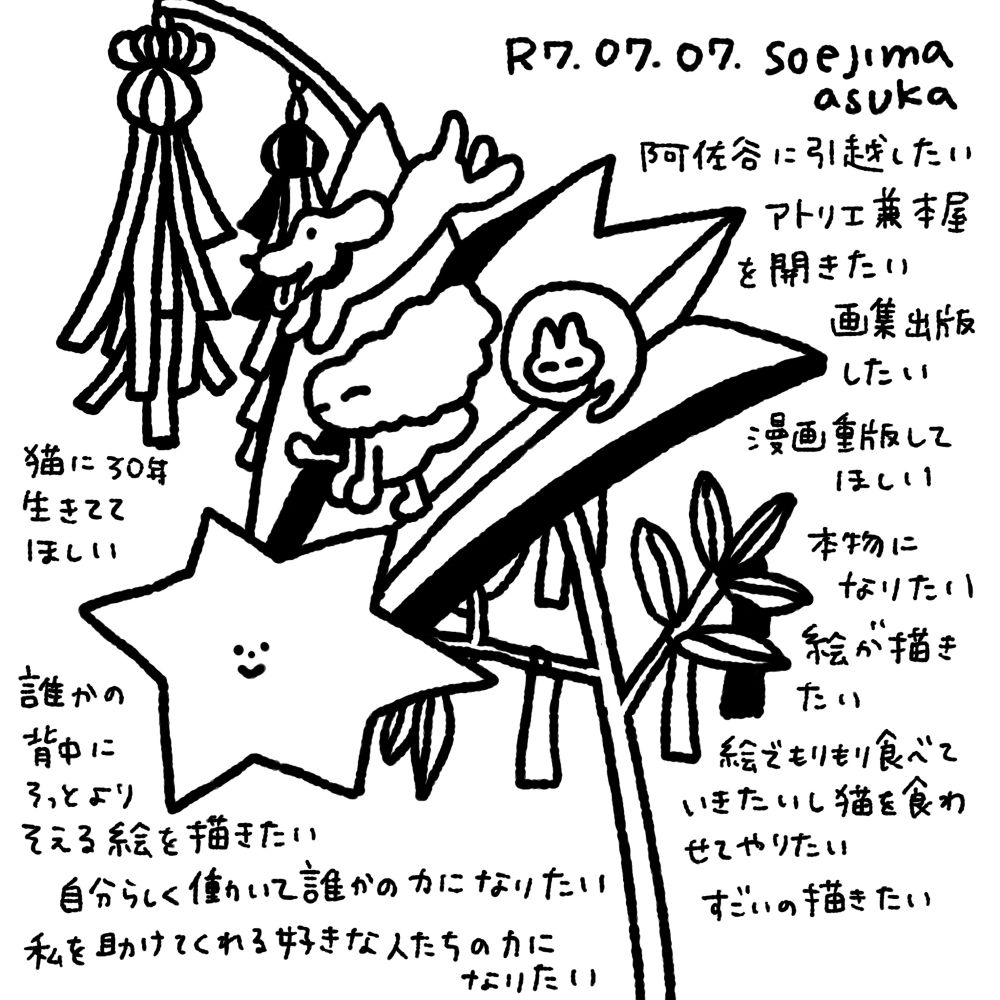 R7.07.07. soejima
asuka
阿佐谷に引越したい
アトリエ兼本屋
を開きたい
画集出版
したい
漫画重版して
ほしい
本物に
なりたい
絵が描き
たい
絵でもりもり食べて
いきたいし猫を食わ
せてやりたい
すごいの描きたい
猫に30年
生きてて
ほしい
誰かの
背中に
そっとより
そえる絵を描きたい
自分らしく働いて誰かの力になりたい
私を助けてくれる好きな人たちの力に
なりたい